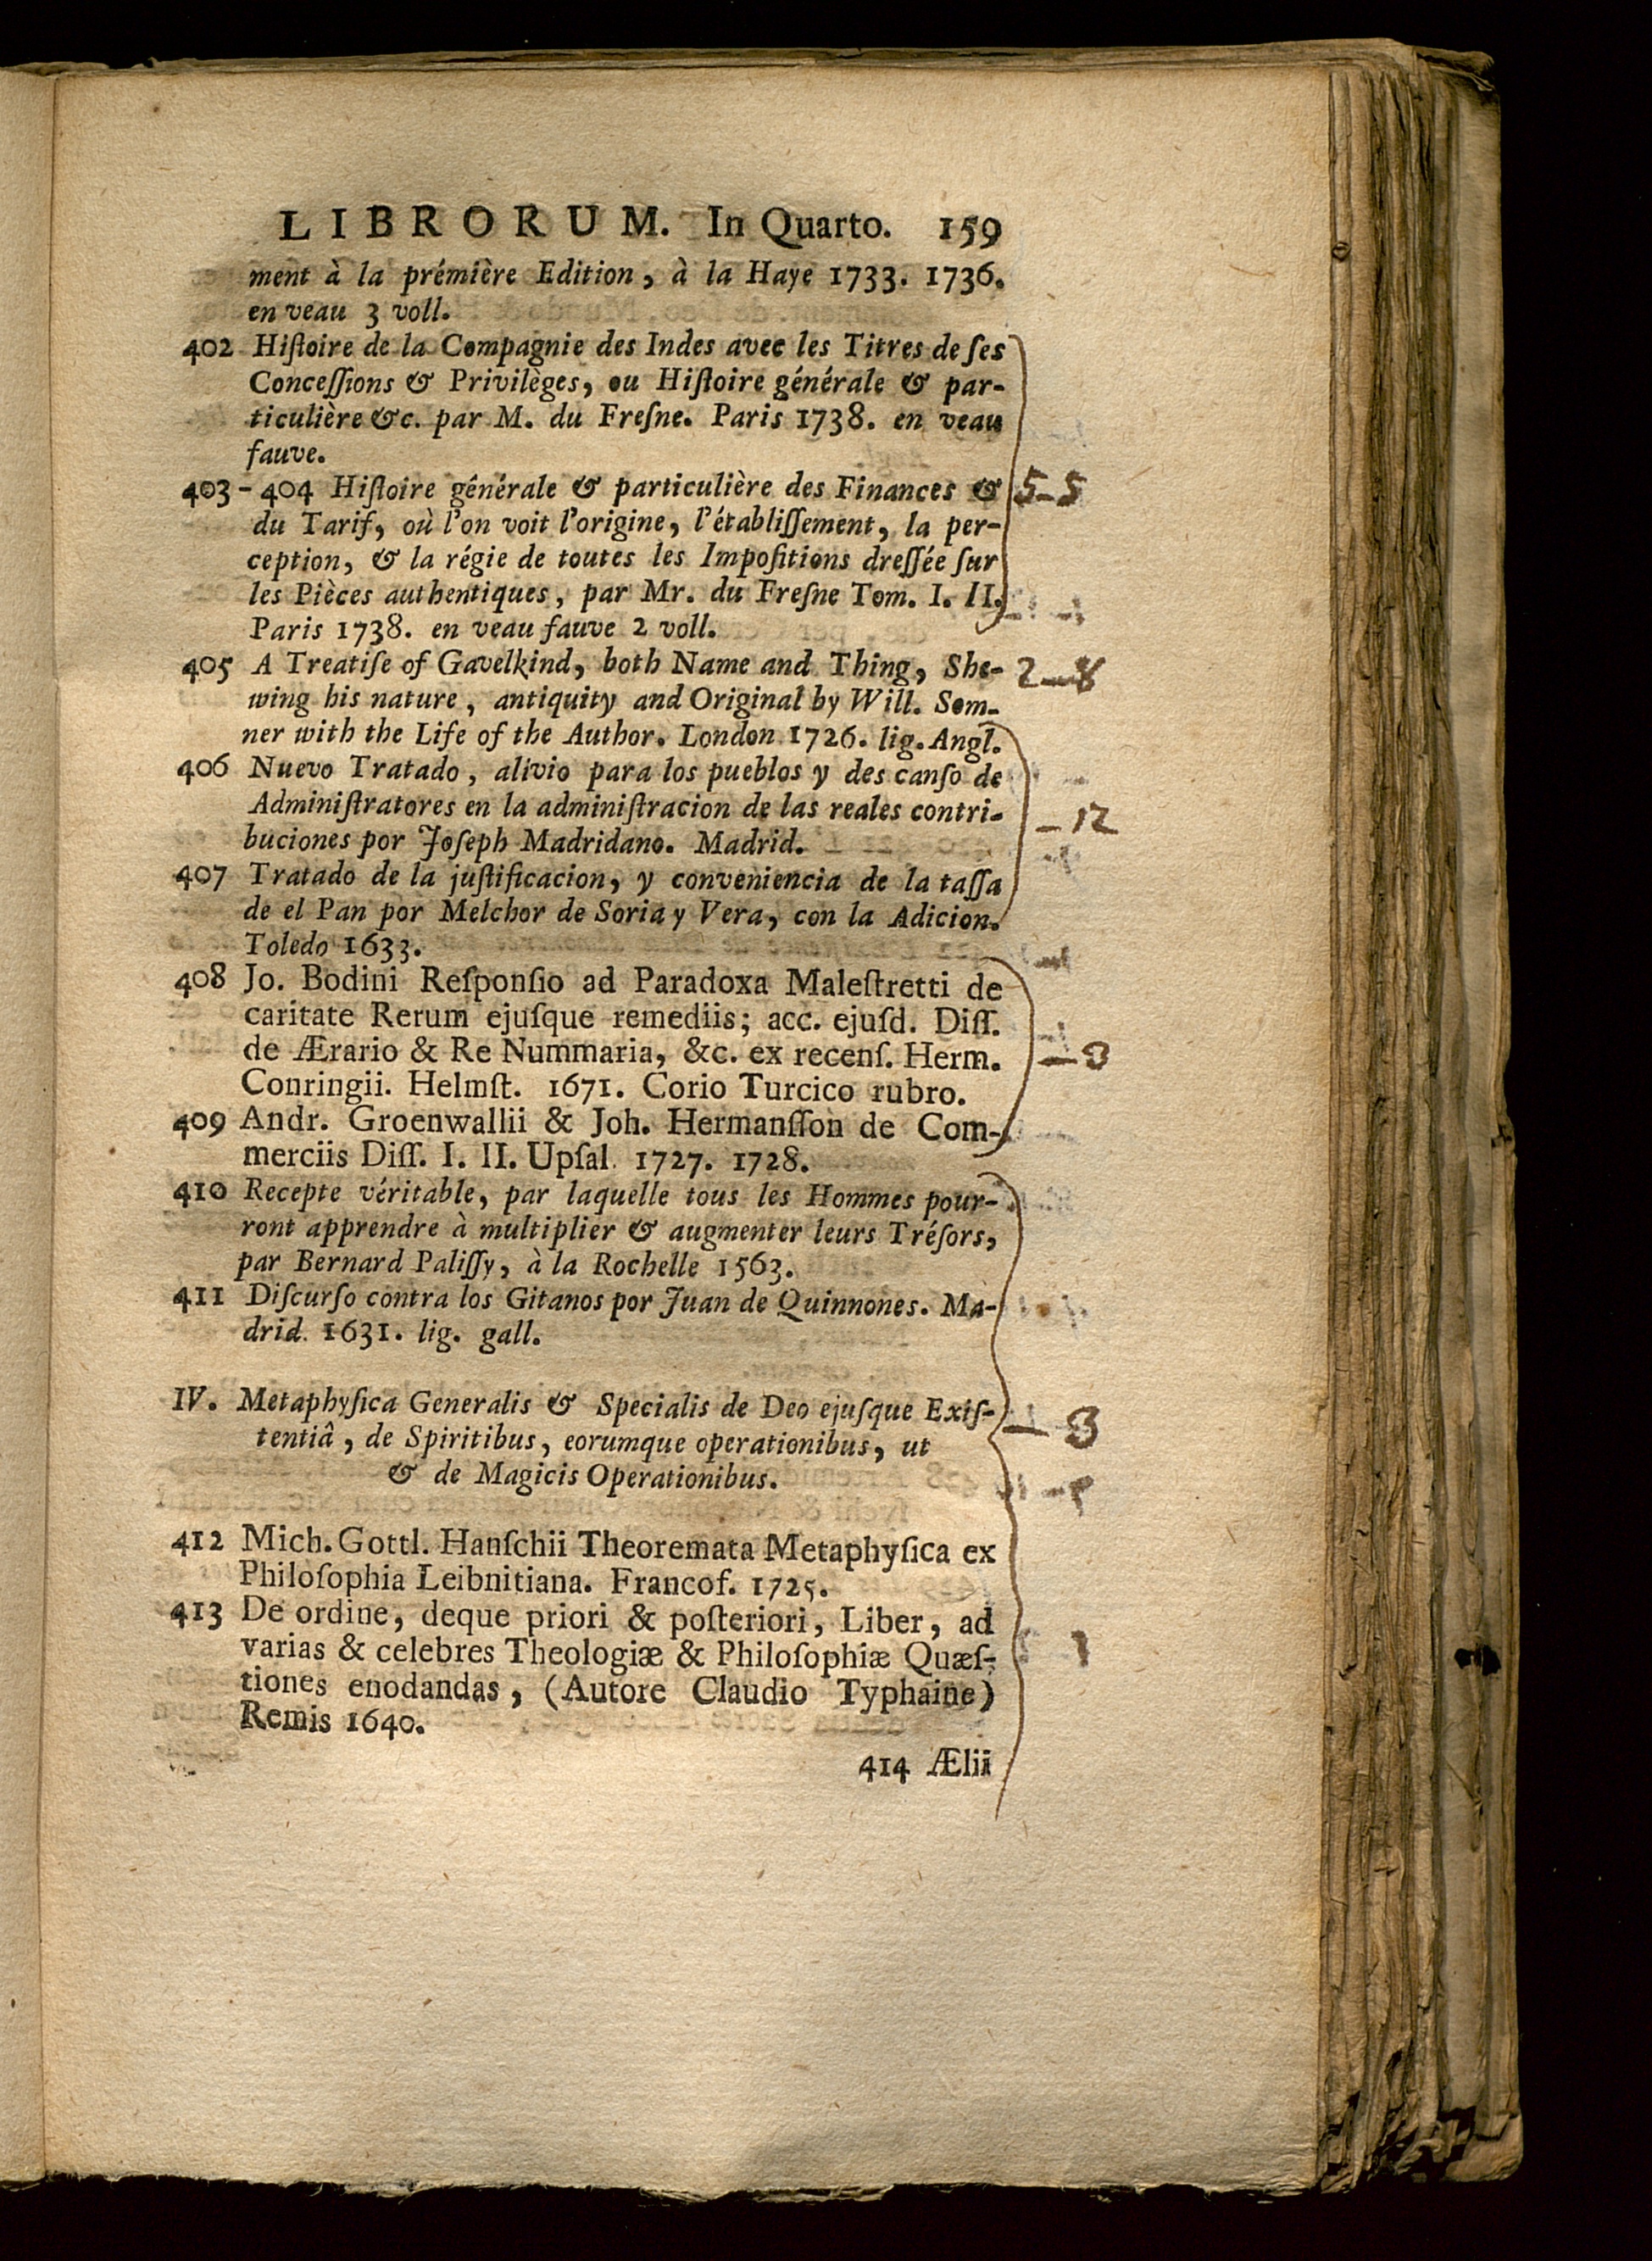 LIBRORUM. In Quarto. 159
ment à la prémière Edition, à la Haye 1733. 1736.
en veau 3 voll.
402 Hiſtoire de la Compagnie des Indes avec les Titres de ſes
Conceſſions & Privilèges, ou Hiſtoire générale & par-
ticulière &c. par M. du Freſne. Paris 1738. en veau
fauve.
403-404 Hiſtoire générale & particulière des Finances & 5-5
du Tarif, où l'on voit l'origine, l'établiſſement, la per-
ception, & la régie de toutes les Impoſitions dreſſée ſur
les Pièces authentiques, par Mr. du Freſne Tom. I. II.
Paris 1738. en veau fauve 2 voll.
405 A Treatiſe of Gavelkind, both Name and Thing, She- 2-8
wing his nature, antiquity and Original by Will. Som-
ner with the Life of the Author. London 1726. lig. Angl.
406 Nuevo Tratado, alivio para los pueblos y des canſo de
Adminiſtratores en la adminiſtracion de las reales contri- -12
buciones por Joſeph Madridano. Madrid.
407 Tratado de la juſtificacion, y conveniencia de la taſſa
de el Pan por Melchor de Soria y Vera, con la Adicion.
Toledo 1633.
408 Jo. Bodini Reſponſio ad Paradoxa Maleſtretti de
caritate Rerum ejuſque remediis; acc. ejuſd. Diſſ.
de Ærario & Re Nummaria, &c. ex recenſ. Herm.
Conringii. Helmſt. 1671. Corio Turcico rubro.
409 Andr. Groenwallii & Joh. Hermanſſon de Com-
merciis Diſſ. I. II. Upſal. 1727. 1728.
410 Recepte véritable, par laquelle tous les Hommes pour-
ront apprendre à multiplier & augmenter leurs Tréſors,
par Bernard Paliſſy, à la Rochelle 1563.
411 Diſcurſo contra los Gitanos por Juan de Quinnones. Ma-
drid. 1631. lig. gall.
IV. Metaphyſica Generalis & Specialis de Deo ejuſque Exiſ-
tentiâ, de Spiritibus, eorumque operationibus, ut
& de Magicis Operationibus.
412 Mich. Gottl. Hanſchii Theoremata Metaphyſica ex
Philoſophia Leibnitiana. Francof. 1725.
413 De ordine, deque priori & poſteriori, Liber, ad
varias & celebres Theologiæ & Philoſophiæ Quæſ-
tiones enodandas, (Autore Claudio Typhaine)
Remis 1640.
414 Ælii